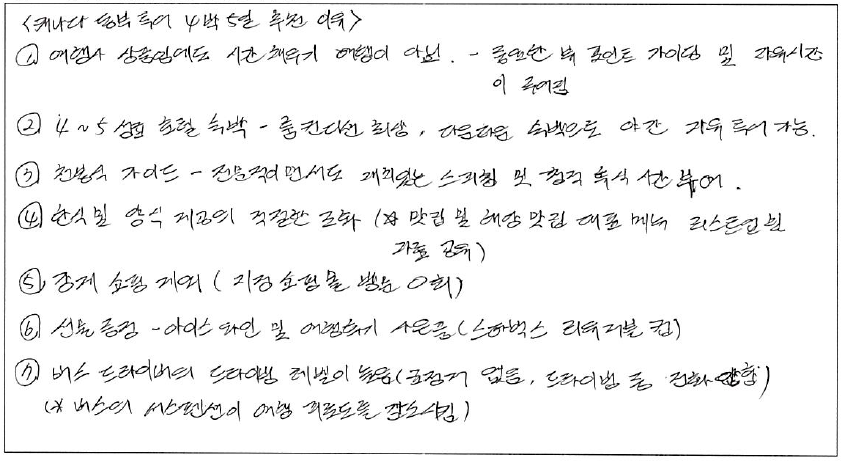 <캐나다 동부 투어 4박 5일 추천 이유>
① 여행사 상품임에도 시간 채우기 여행이 아님. - 충분한 뷰 포인트 가이딩 및 자유시간
이 주어짐
② 4~5성급 호텔 숙박 - 룸컨디션 최상, 다운타운 숙박으로 야간 자유 투어 가능.
③ 천봉식 가이드 - 전문적이면서도 재미있는 스피칭 및 적절 휴식 시간 부여.
④ 한식 및 양식 제공의 적절한 조화 (※ 맛집 및 해당 맛집 대표 메뉴 리스트업된
자료 공유)
⑤ 강제 쇼핑 제외 (지정 쇼핑몰 방문 0회)
⑥ 선물 증정 - 아이스 와인 및 여행후기 사은품(스타벅스 리유저블 컵)
⑦ 버스 드라이버의 드라이빙 레벨이 높음(급정거 없음, 드라이빙 중 전화 안함)
(※ 버스의 서스펜션이 여행 피로도를 감소시킴)